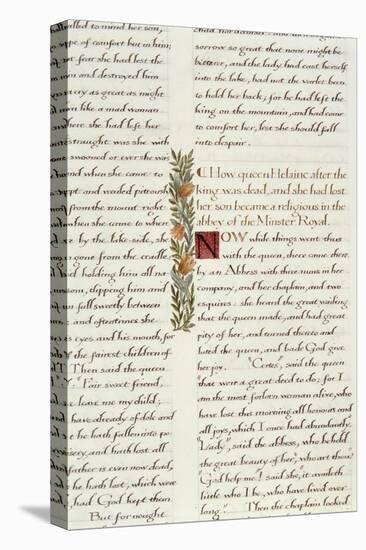 called to mind her son,
hope of comfort but in him;
fear she had lost the
and destroyed him
cry as great as might
like a mad woman
where she had left her
straught was she with
swooned or ever she was
and when she came to
wept and wailed piteously
from the mount right
when she came to where
by the lake-side, she
gone from the cradle,
holding him all na-
som, clipping him and
full sweetly between
and oftentimes she
eyes and his mouth, for
the fairest children of
Then said the queen
"Fair sweet friend,
leave me my child;
have already of dole and
he hath fallen into po-
and hath lost all
father is even now dead,
he hath left, which were
had God kept them
But for nought
child
sorrow so great that none might be
bitterer, and the lady had cast herself
into the lake, had not the varlet been
to hold her back; for he had left the
king on the mountain, and had come
to comfort her, lest she should fall
into despair.
How queen Helaine after the
king was dead, and she had lost
her son became a religious in the
abbey of the Minster Royal.
NOW while things went thus
with the queen, there came there
by an Abbess with three nuns in her
company, and her chaplain, and two
esquires: she heard the great wailing
that the queen made, and had great
pity of her, and turned thereto and
hailed the queen, and bade God give
her joy. "Certes", said the queen
"that were a great deed to do; for I
am the most forlorn woman alive, who
have lost this morning all honours and
all joys, which I once had abundantly.
"Lady", said the abbess, who beheld
the great beauty of her, "who art thou?"
"God help me! I said she", it availeth
little who I be, who have lived over
long." Then the chaplain looked